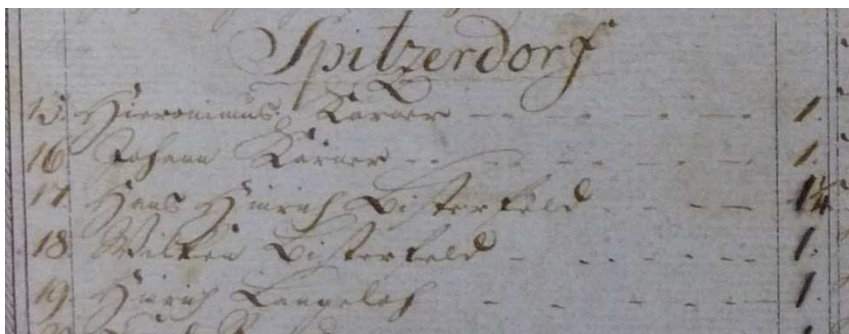 Spitzerdorf
15. Hieronimus Körner - - - - - 1.
16. Johann Körner - - - - - - 1.
17. Hans Hinrich Bisterfeld - - - - 1¼
18. Wilken Bisterfeld - - - - - 1.
19. Hinrich Langeloh - - - - - 1.